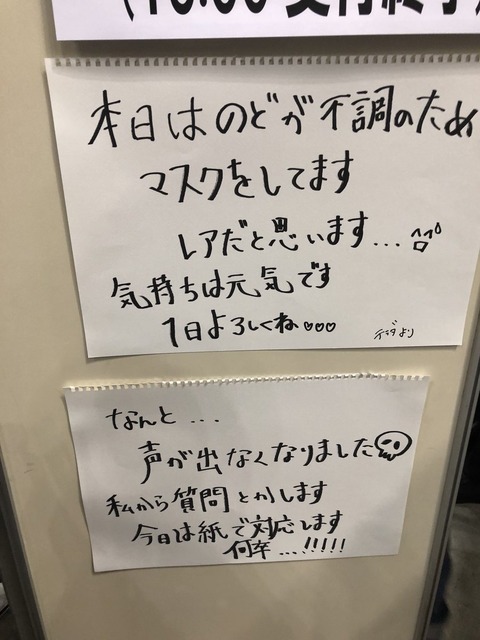 本日はのどが不調のため
マスクをしてます
レアだと思います...
気持ちは元気です
1日よろしくね♡♡♡
より
なんと...
声が出なくなりました
私から質問とかします
今日は紙で対応します
何卒...!!!!!